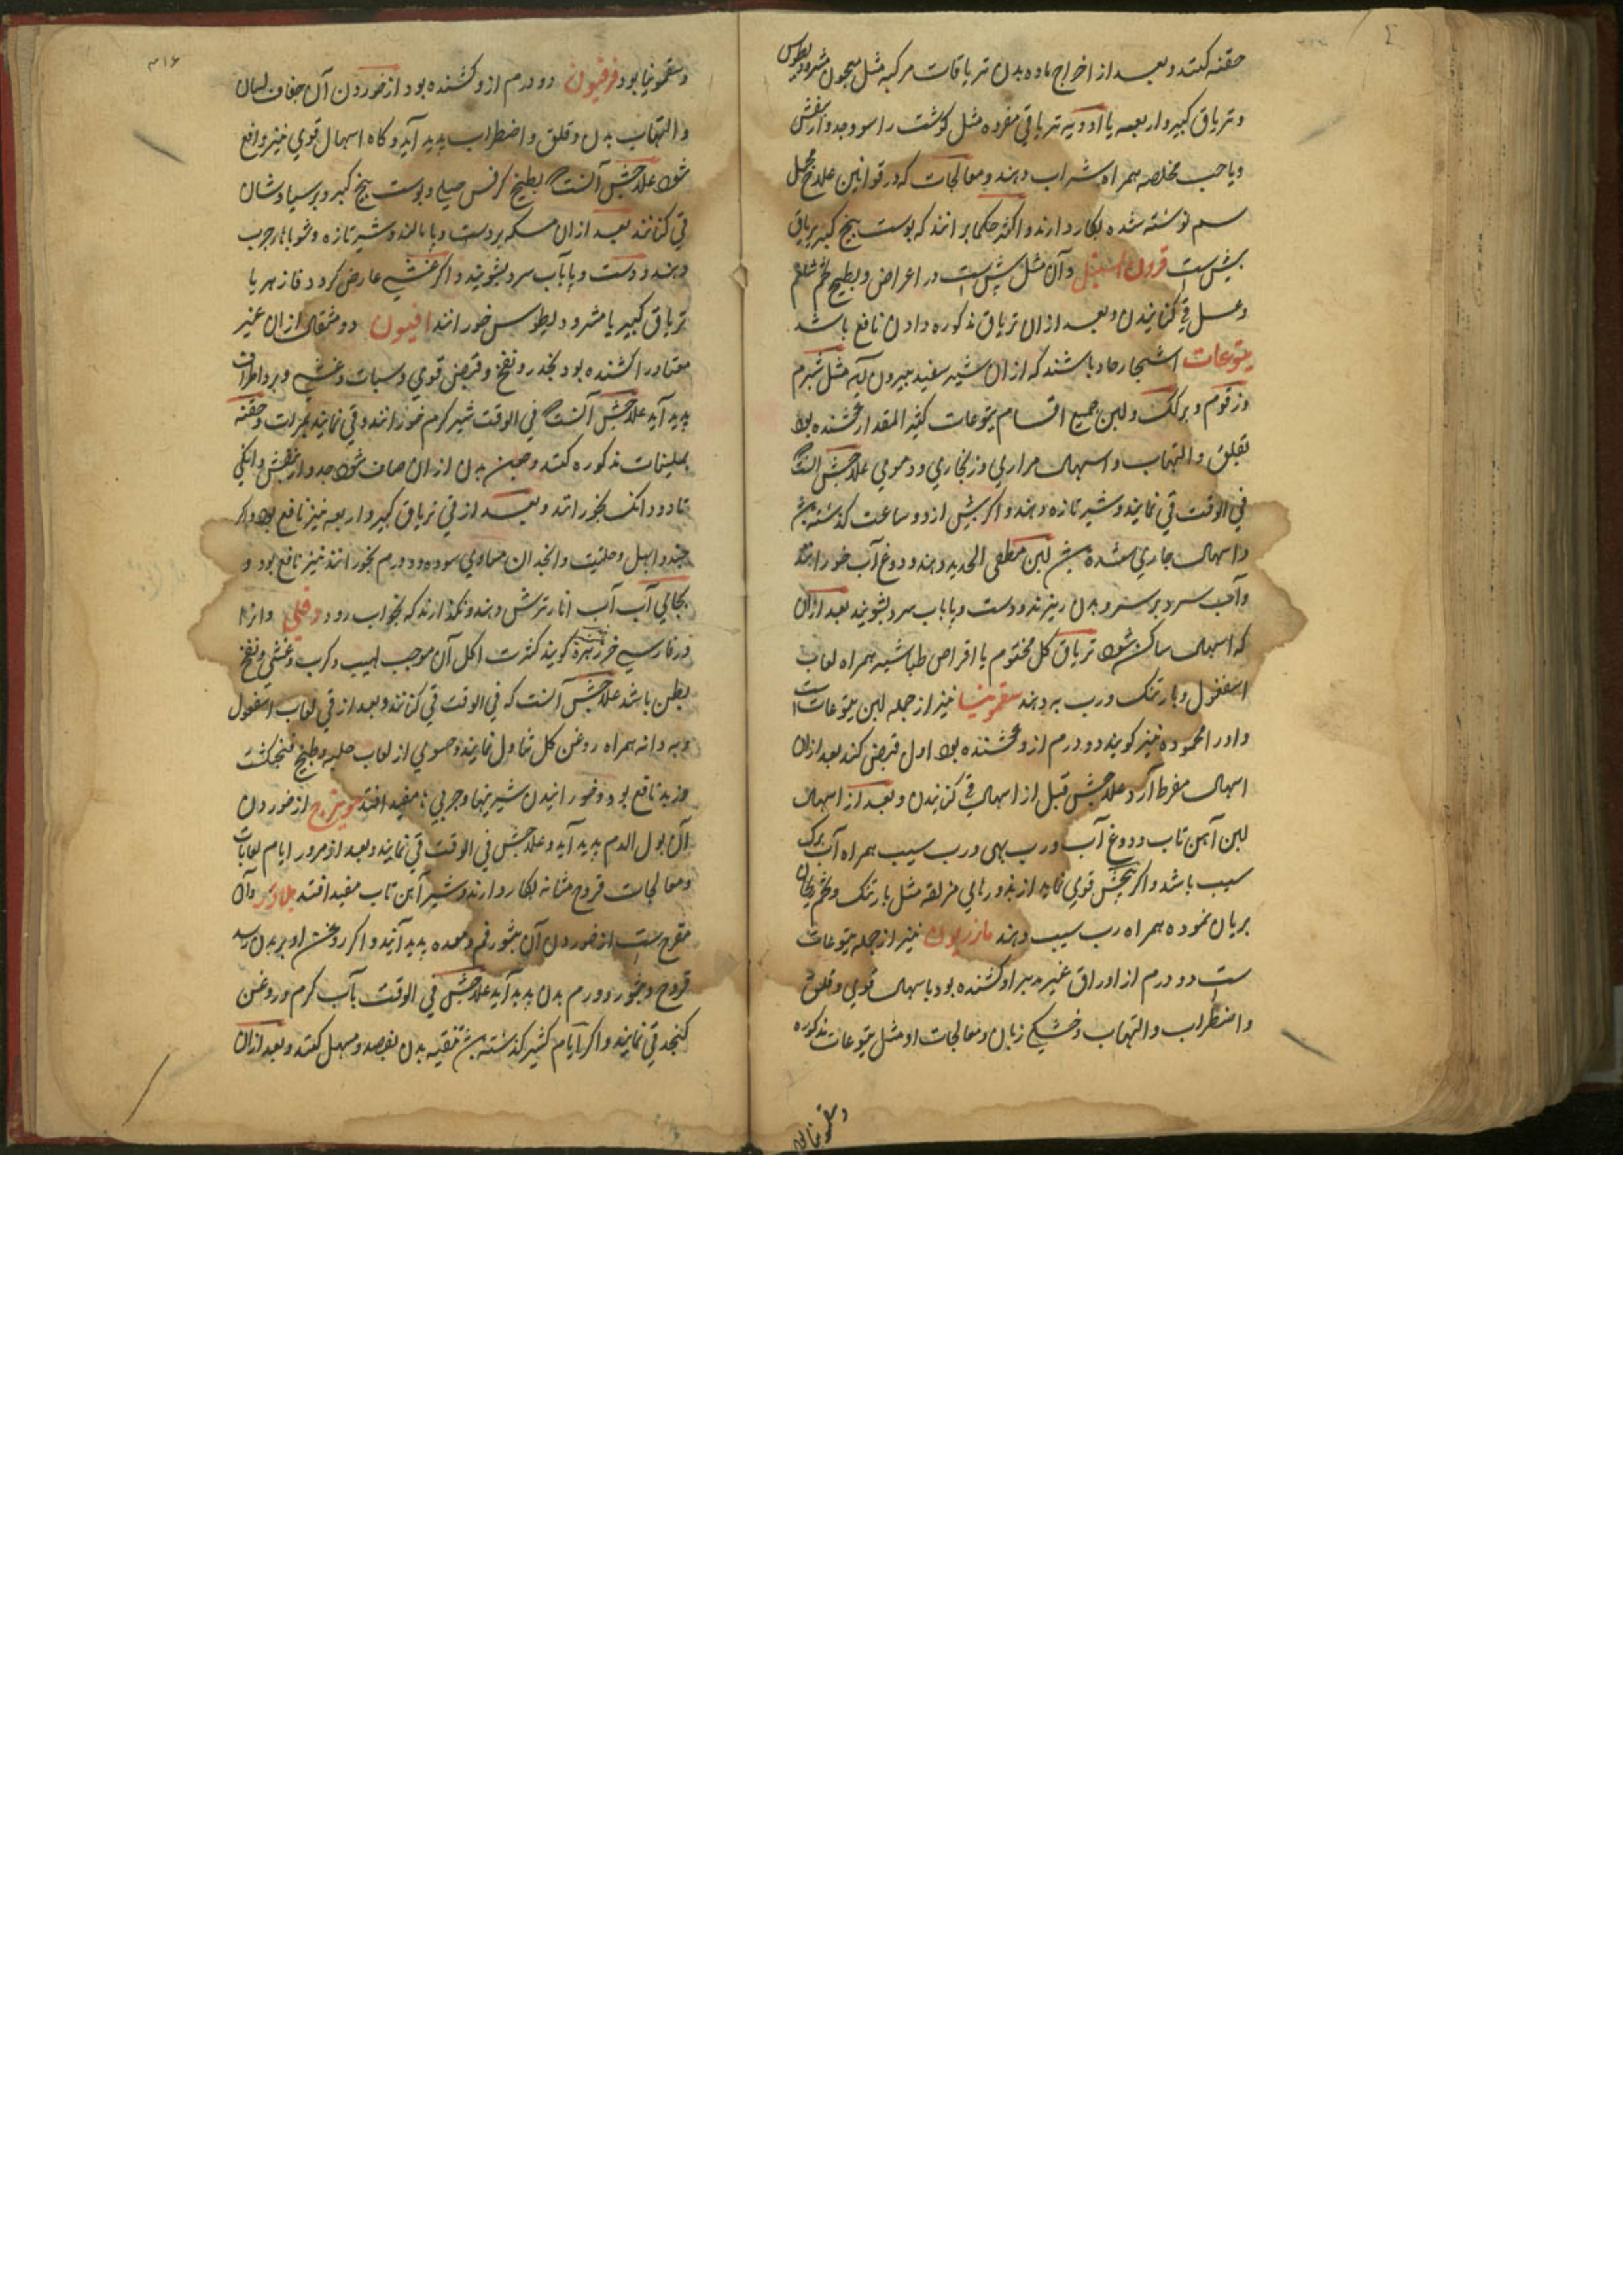 حقنه کنند و بعد از اخراج ماده بدن تریاقات مرکبه مثل معجون مثرودیطوس
و تریاق کبیر و اربعه یا ادویه تریاقی مفرده مثل کوشت راسو و جدوار بنفش
و یا حب مخلصه همراه شراب دهند و معالجات که در قوانین علاج مجمل
سم نوشته شده بکار دارند و اکثر حکما برانند که پوست بیخ کبر تریاق
بیش ست قرون السنبل و آن مثل بیش ست در اعراض و بطبیخ تخم شلغم
و عسل قی کنانیدن و بعد ازان تریاق مذکوره دادن نافع باشد
یتوعات اشجار حاد باشند که ازان شیر سفید بیرون آید مثل شبرم
و زقوم و برکک و لبن جمیع اقسام یتوعات کثیر المقدار کشنده بود
بقلق و التهاب و اسهال مراری و زنجاری و دموی علاجش آنست
فی الوقت قی نمایند و شیر تازه دهند و اکر بیش از دو ساعت کذشته باشد
و اسهال جاری شده باشد لبن مطفی الحدید دهند و دوغ آب خورانند
و آب سرد بر سر و بدن ریزند و دست و پا بآب سرد بشویند بعد ازان
که اسهال ساکن شود تریاق کل مختوم یا اقراص طباشیر همراه لعاب
اسفغول و بارتنک و رب به دهند سقمونیا نیز از جمله لبن یتوعات است
و او را محموده نیز کویند دو درم ازو کشنده بود اول قبض کند بعد ازان
اسهال مفرط آرد علاجش قبل از اسهال قی کنانیدن و بعد از اسهال
لبن آهن تاب و دوغ آب و رب بهی و رب سیب همراه آب برک
سیب باشد و اکر پیچش قوی نماید از بذورهای مزلقه مثل بارتنک و تخم ریحان
بریان نموده همراه رب سیب دهند مازریون نیز از جمله یتوعات
ست دو درم از اوراق غیر مدبر او کشنده بود باسهال قوی و قلق
و اضطراب و التهاب و خشکی زبان و معالجات او مثل یتوعات مذکوره
و سقمونیا بود
۳۱۶
و سقمونیا بود فرفیون دو درم ازو کشنده بود از خوردن آن جفاف لسان
و التهاب بدن و قلق و اضطراب پدید آید و کاه اسهال قوی نیز واقع
شود علاجش آنست بطبیخ کرفس جبلی و پوست بیخ کبر و پرسیاوشان
قی کنانند بعد ازان مسکه بر دست و پا مالند و شیر تازه و شورباهاء چرب
دهند و دست و پا بآب سرد بشویند و اکر غشی عارض کردد فازهر یا
تریاق کبیر یا مثرودیطوس خورانند افیون دو مثقال ازان غیر
معتاد را کشنده بود بخدر و نفخ و قبض قوی و سبات و غشی و برد اطراف
پدید آید علاجش آنست فی الوقت شیر کرم خورانند و قی نمایند بمرات و حقنه
بملینات مذکوره کنند و چون بدن ازان صاف شود جدوار بنفش دانکی
تا دو دانک بخورانند و بعد از قی تریاق کبیر و اربعه نیز نافع بود و اکر
جند و ابهل و حلتیت و انجدان مساوی سوده دو درم بخورانند نیز نافع بود و
بجای آب آب انار ترش دهند و نکذارند که بخواب رود دفلی و انرا
در فارسی خرزهره کویند کثرت اکل آن موجب لهیب و کرب و غشی و نفخ
بطن باشد علاجش آنست که فی الوقت قی کنانند و بعد از قی لعاب اسفغول
و به دانه همراه روغن کل تناول نمایند و حسوی از لعاب حلبه و طبیخ فنجنکشت
مزید نافع بود و خورانیدن شیرینیها و چربی‌ها مفید افتد از خوردن
آن بول الدم پدید آید و علاجش فی الوقت قی نمایند و بعد از مرور ایام لعابات
و معالجات قروح مثانه بکار دارند و شیر آهن تاب مفید افتد بلادر و آن
مقرح ست از خوردن آن بثور فم و معده پدید آیند و اکر روغن او بر بدن رسد
قروح و بثور و ورم بدن پدید آید علاجش فی الوقت بآب کرم و روغن
کنجد قی نمایند و اکر ایام کثیر کذشته باشد تنقیه بدن بفصد و مسهل کنند و بعد ازان